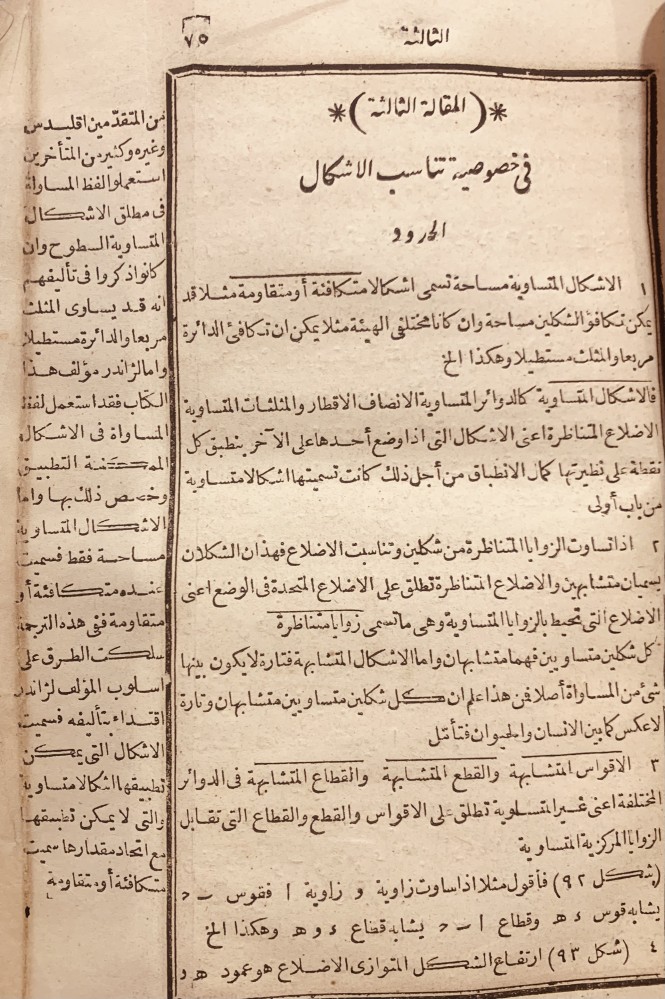 الثالثة
٧٥
*(المقالة الثالثة)*
فى خصوصية تناسب الاشكال
الحدود
١ الاشكال المتساوية مساحة تسمى اشكالا متكافئة أو متقاومة مثلا قد
يمكن تكافؤ الشكلين مساحة وان كانا مختلفى الهيئة مثلا يمكن ان تكافئ الدائرة
مربعا والمثلث مستطيلا وهكذا الخ
فالاشكال المتساوية كالدوائر المتساوية الانصاف الاقطار والمثلثات المتساوية
الاضلاع المتناظرة اعنى الاشكال التى اذا وضع أحدها على الآخر ينطبق كل
نقطة على نظيرتها كمال الانطباق من أجل ذلك كانت تسميتها اشكالا متساوية
من باب أولى
٢ اذا تساوت الزوايا المتناظرة من شكلين وتناسبت الاضلاع فهذان الشكلان
يسميان متشابهين والاضلاع المتناظرة تطلق على الاضلاع المتحدة فى الوضع اعنى
الاضلاع التى تحيط بالزوايا المتساوية وهى ما تسمى زوايا متناظرة
كل شكلين متساويين فهما متشابهان واما الاشكال المتشابهة فتارة لا يكون بينها
شئ من المساواة أصلا فمن هذا علم ان كل شكلين متساويين متشابهان وتارة
لا عكس كما بين الانسان والحيوان فتأمل
٣ الاقواس المتشابهة والقطع المتشابهة والقطاع المتشابهة فى الدوائر
المختلفة اعنى غير المتساوية تطلق على الاقواس والقطع والقطاع التى تقابل
الزوايا المركزية المتساوية
(شكل ٩٢) فأقول مثلا اذا ساوت زاوية و زاوية ا فقوس ـ ح
يشابه قوس ء ه وقطاع ا ـ ح يشابه قطاع ء و ه وهكذا الخ
٤ (شكل ٩٣) ارتفاع الشكل المتوازى الاضلاع هو عمود ه و
من المتقدّمين اقليدس
وغيره وكثير من المتأخرين
استعملوا لفظ المساواة
فى مطلق الاشكال
المتساوية السطوح وان
كانوا ذكروا فى تأليفهم
انه قد يساوى المثلث
مربعا والدائرة مستطيلا
واما لژاندر مؤلف هذا
الكتاب فقد استعمل لفظ
المساواة فى الاشكال
الممكنة التطبيق
وخصص ذلك بها واما
الاشكال المتساوية
مساحة فقط فسميت
عنده متكافئة أو
متقاومة ففى هذه الترجمة
سلكت الطرق على
اسلوب المؤلف لژاندر
اقتداء بتأليفه فسميت
الاشكال التى يمكن
تطبيقها اشكالا متساوية
والتى لا يمكن تطبيقها
مع اتحاد مقدارها سميت
متكافئة أو متقاومة